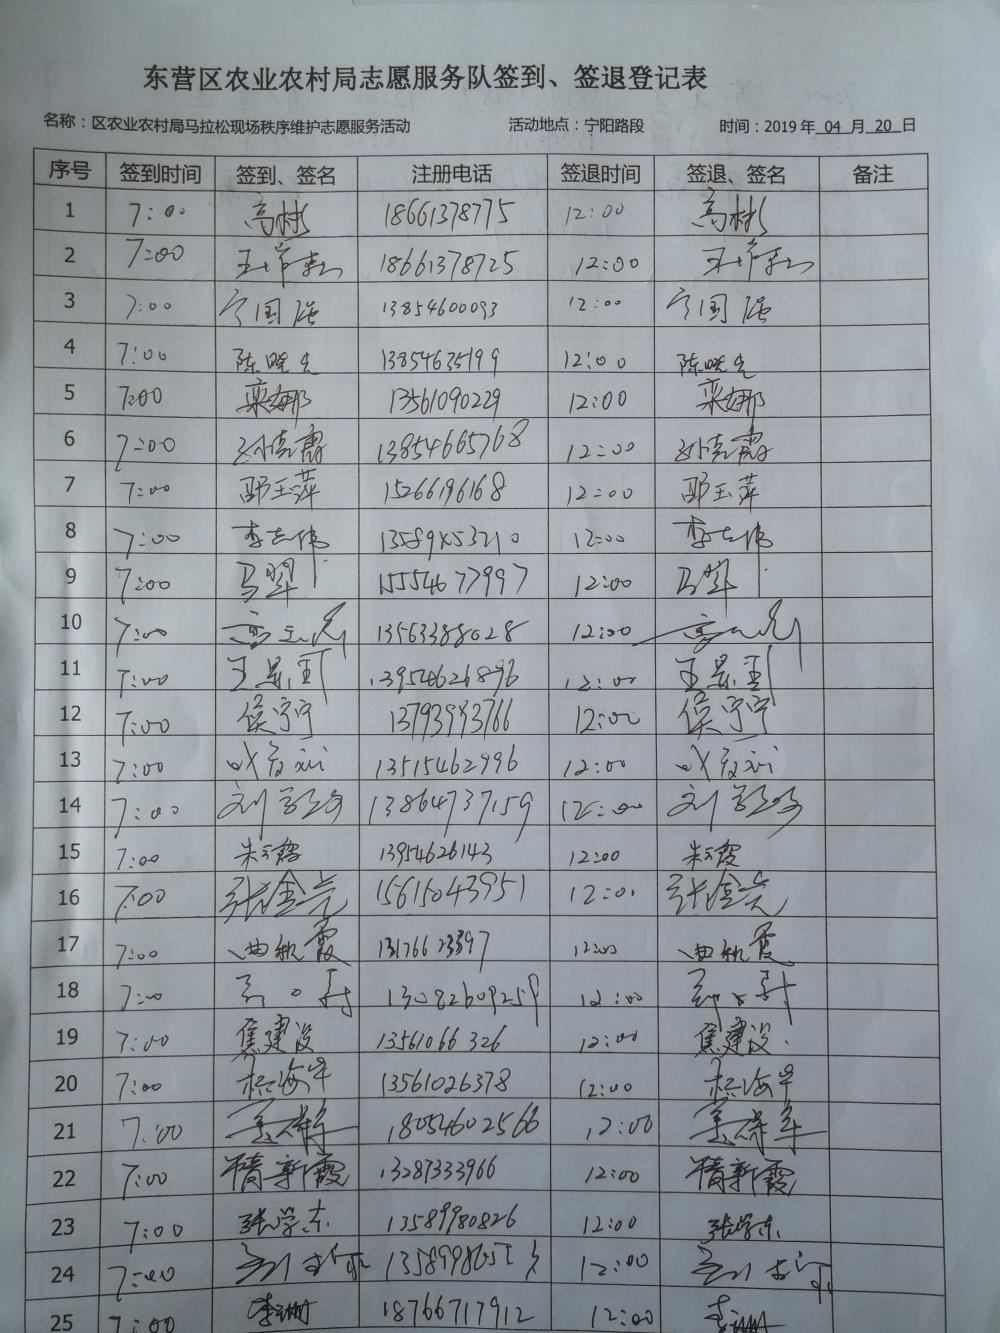 东营区农业农村局志愿服务队签到、签退登记表
名称：区农业农村局马拉松现场秩序维护志愿服务活动 活动地点：宁阳路段 时间：2019 年 04 月 20 日
序号 签到时间 签到、签名 注册电话 签退时间 签退、签名 备注
1 7:00 高彬 18661378775 12:00 高彬
2 7:00 18661378725 12:00
3 7:00 宁国强 13854600093 12:00 宁国强
4 7:00 陈晓光 13854635199 12:00 陈晓光
5 7:00 栾娜 13561090229 12:00 栾娜
6 7:00 孙克霞 13854665768 12:00 孙克霞
7 7:00 邵玉萍 15266196168 12:00 邵玉萍
8 7:00 李志伟 12:00 李志伟
9 7:00 马翠 15554677997 12:00 马翠
10 7:00 13563388028 12:00
11 7:00 王景利 13954626896 12:00 王景利
12 7:00 侯宁宁 13793993766 12:00 侯宁宁
13 7:00 13515462996 12:00
14 7:00 刘 13864737159 12:00 刘
15 7:00 朱云霞 13954626143 12:00 朱云霞
16 7:00 张金亮 15615043951 12:00 张金亮
17 7:00 曲秋霞 13176623397 12:00 曲秋霞
18 7:00 13082609259 12:00
19 7:00 焦建设 13561066326 12:00 焦建设
20 7:00 杨海军 13561026378 12:00 杨海军
21 7:00 18054602566 12:00
22 7:00 隋新霞 13287333966 12:00 隋新霞
23 7:00 张学东 13589980826 12:00 张学东
24 7:00 12:00
25 7:00 李珊 18766717912 12:00 李珊